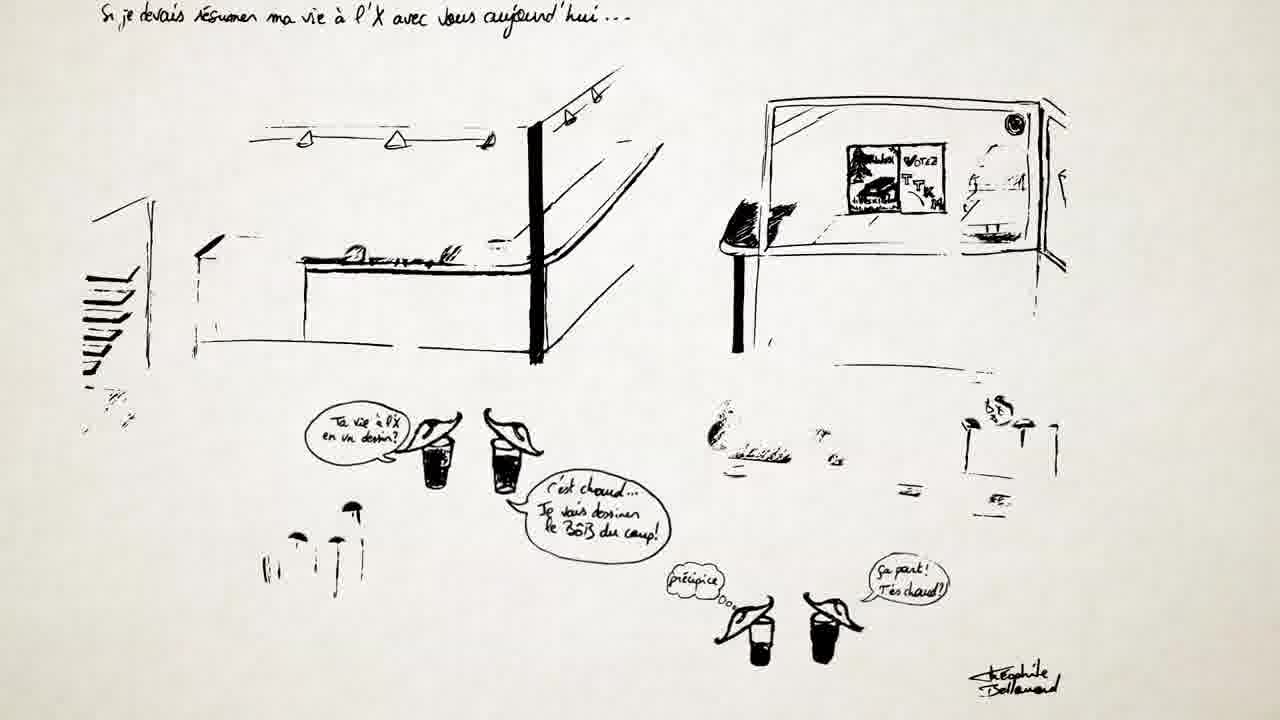 Si je devais résumer ma vie à l'X avec vous aujourd'hui ...
VOTEZ
TTK
Ta vie à l'X
en un dessin?
C'est chaud...
Je vais dessiner
le BôB du coup!
précipice
ça part!
T'es chaud?
Théophile